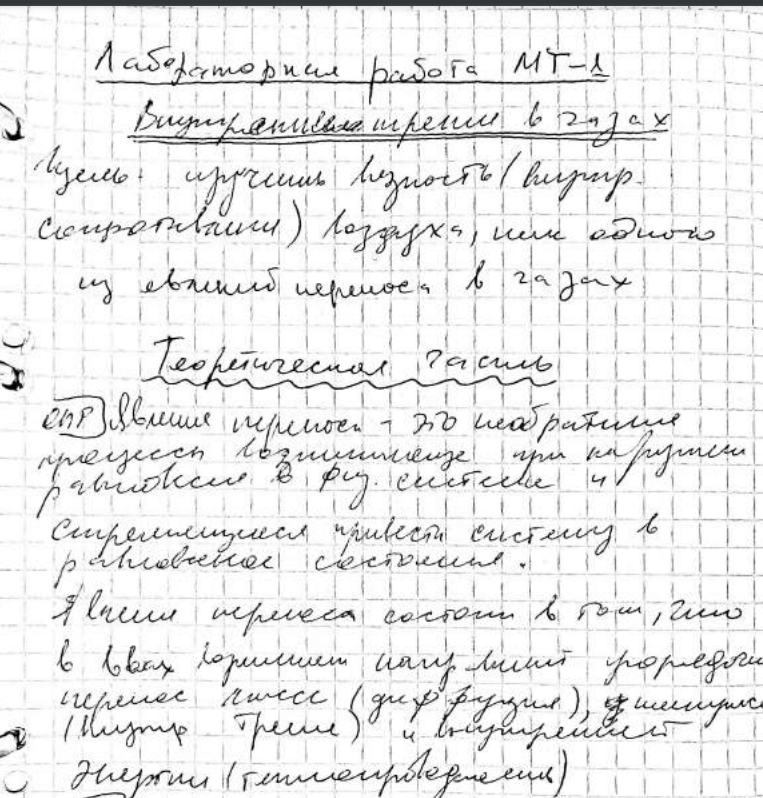 Лабораторная работа МТ-1
Внутреннее трение в газах
Цель: изучить вязкость (внутр.
сопротивление) воздуха, как одного
из явлений переноса в газах
Теоретическая часть
опр Явление переноса - это необратимые
процессы возникающие при нарушении
равновесия в физ. системе и
стремящиеся привести систему в
равновесное состояние.
Явление переноса состоит в том, что
в в-вах возникает направленный упорядоч
перенос массы (диффузия), импульса
(внутр трение) и внутренней
энергии (теплопроводность)